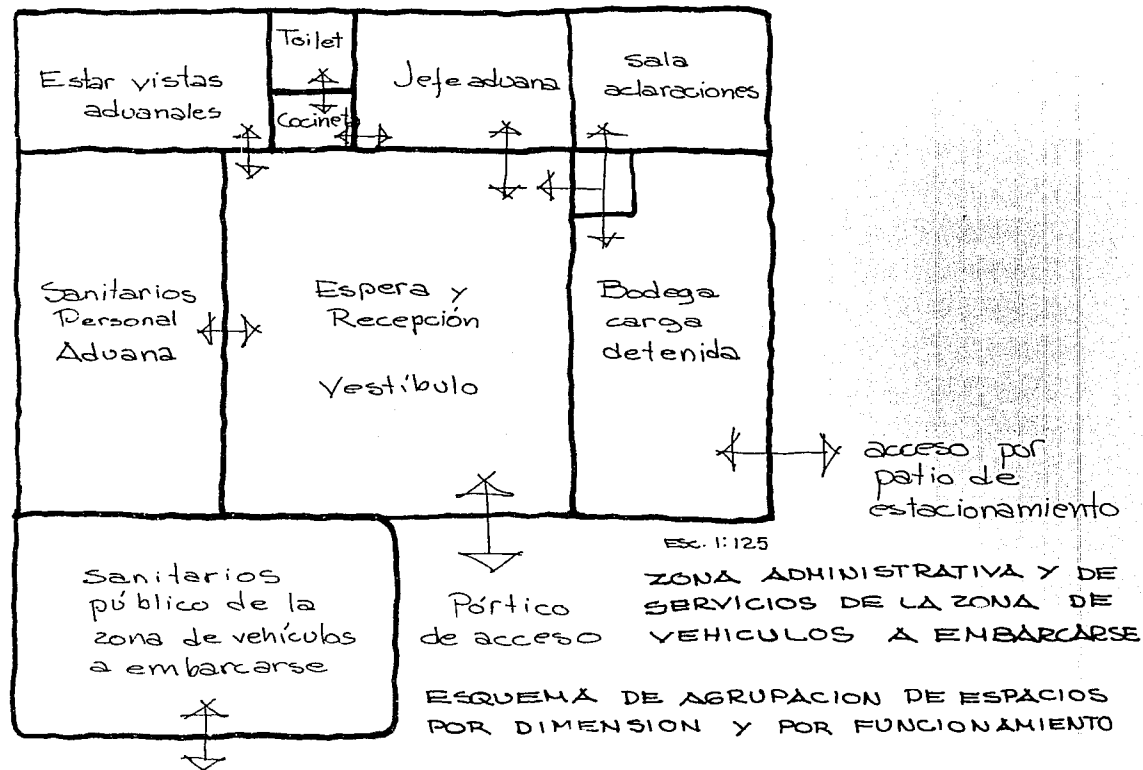 Toilet
Estar vistas
aduanales
Jefe aduana
Sala
aclaraciones
Cocineta
Sanitarios
Personal
Aduana
Espera y
Recepción
Vestíbulo
Bodega
carga
detenida
acceso por
patio de
estacionamiento
Esc. 1:125
Sanitarios
público de la
zona de vehículos
a embarcarse
Pórtico
de acceso
ZONA ADMINISTRATIVA Y DE
SERVICIOS DE LA ZONA DE
VEHICULOS A EMBARCARSE
ESQUEMA DE AGRUPACION DE ESPACIOS
POR DIMENSION Y POR FUNCIONAMIENTO